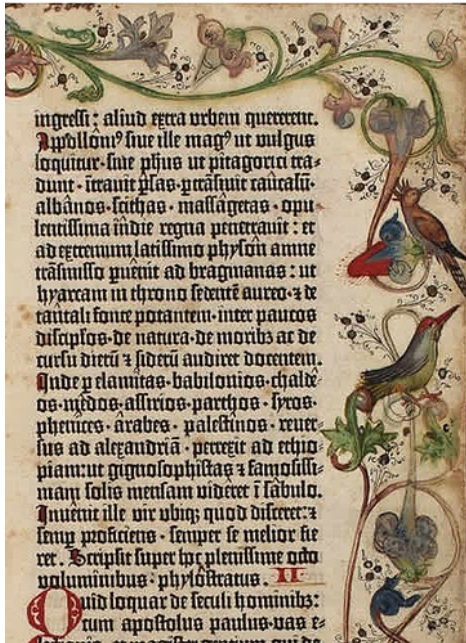 ingressi: aliud extra urbem quererent.
Appolloniꝰ siue ille magꝰ ut uulgus
loquitur· siue phus ut pitagorici tra-
dunt· ītrauit p̄sas· ptrāsiuit caucasū·
albānos· scithas· massāgetas· opu
lentissima indie regna penetrauit: et
ad extremum latissimo physon amne
trāsmisso puēnit ad bragmanas: ut
hyarcam in throno sedentē aureo· ⁊ de
tātali fonte potantem· inter paucos
discipl̄os· de natura· de moribꝫ ac de
cursu dierū ⁊ siderū audiret docentem.
Inde p elamitas· babilonios· chaldē-
os· medos· assirios· parthos· syros·
phenices· ārabes· palestīnos· reuer-
sus ad alexandriā· perrexit ad ethio-
piam: ut gignosophistas ⁊ famosissi-
mam solis mensam videret ī sabulo.
Inuēnit ille vir ubiqꝫ quod disceret: ⁊
semp proficiens· semper se melior fie
ret. Scripsit super hoc plenissime octo
voluminibus: phylostratus. II
Quid loquar de seculi hominibꝫ:
cum apostolus paulus· vas e-